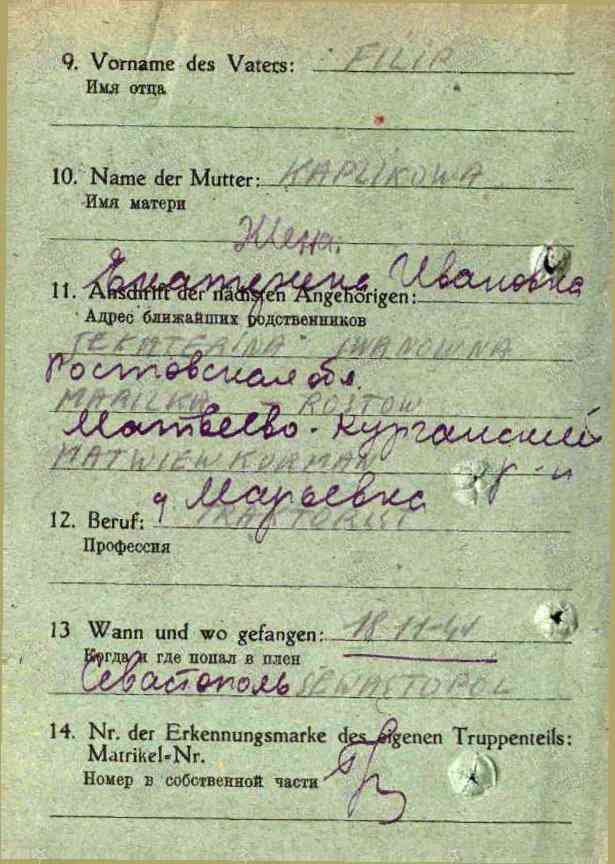 9. Vorname des Vaters: FILIP
Имя отца
10. Name der Mutter: KAPLIKOWA
Имя матери
Жена.
Екатерина Ивановна
11. Anschrift der nächsten Angehörigen:
Адрес ближайших родственников
JEKATERINA IWANOWNA
Ростовская обл.
ROSTOW
Матвеево-Курганский
MATWIEW KURMAN р-н
д Марьевка
12. Beruf: TRAKTORIST
Профессия
13 Wann und wo gefangen: 18 11-41
Когда и где попал в плен
Севастополь SEWASTOPOL
14. Nr. der Erkennungsmarke des eigenen Truppenteils:
Matrikel-Nr.
Номер в собственной части